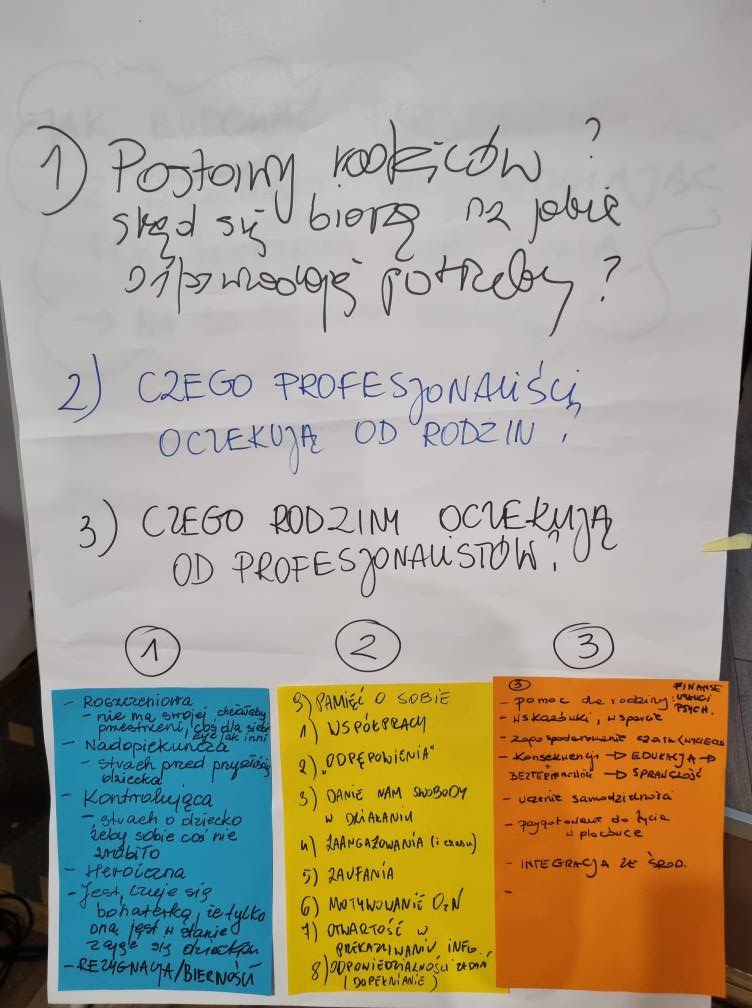 1) Postawy rodziców?
skąd się biorą na jakie
odpowiadają potrzeby?
2) CZEGO PROFESJONALIŚCI
OCZEKUJĄ OD RODZIN?
3) CZEGO RODZINY OCZEKUJĄ
OD PROFESJONALISTÓW?
1
2
3
- ROSZCZENIOWA
- nie ma swojej
przestrzeni, coś dla siebie
chciałaby
żyć jak inni
- Nadopiekuńcza
- strach przed przyszłością
dziecka
- Kontrolująca
- strach o dziecko
żeby sobie coś nie
zrobiło
- Heroiczna
- Jest, czuje się
bohaterką, że tylko
ona jest w stanie
zająć się dzieckiem
- REZYGNACJA/BIERNOŚĆ
9) PAMIĘĆ O SOBIE
1) WSPÓŁPRACY
2) „ODPĘPOWIENIA"
3) DANIE NAM SWOBODY
W DZIAŁANIU
4) ZAANGAŻOWANIA (i czasu)
5) ZAUFANIA
6) MOTYWOWANIE OzN
7) OTWARTOŚĆ W
PRZEKAZYWANIU INFO.
8) ODPOWIEDZIALNOŚCI
(DOPEŁNIANIE)
3
FINANSE
USŁUGI
PSYCH.
- pomoc dla rodziny:
- wskazówki, wsparcie
- zagospodarowanie czasu
- Konsekwencji → EDUKACJA →
→ SPRAWCZOŚĆ
- uczenie samodzielności
- przygotowanie do życia
w placówce
- INTEGRACJA ZE ŚROD.
-